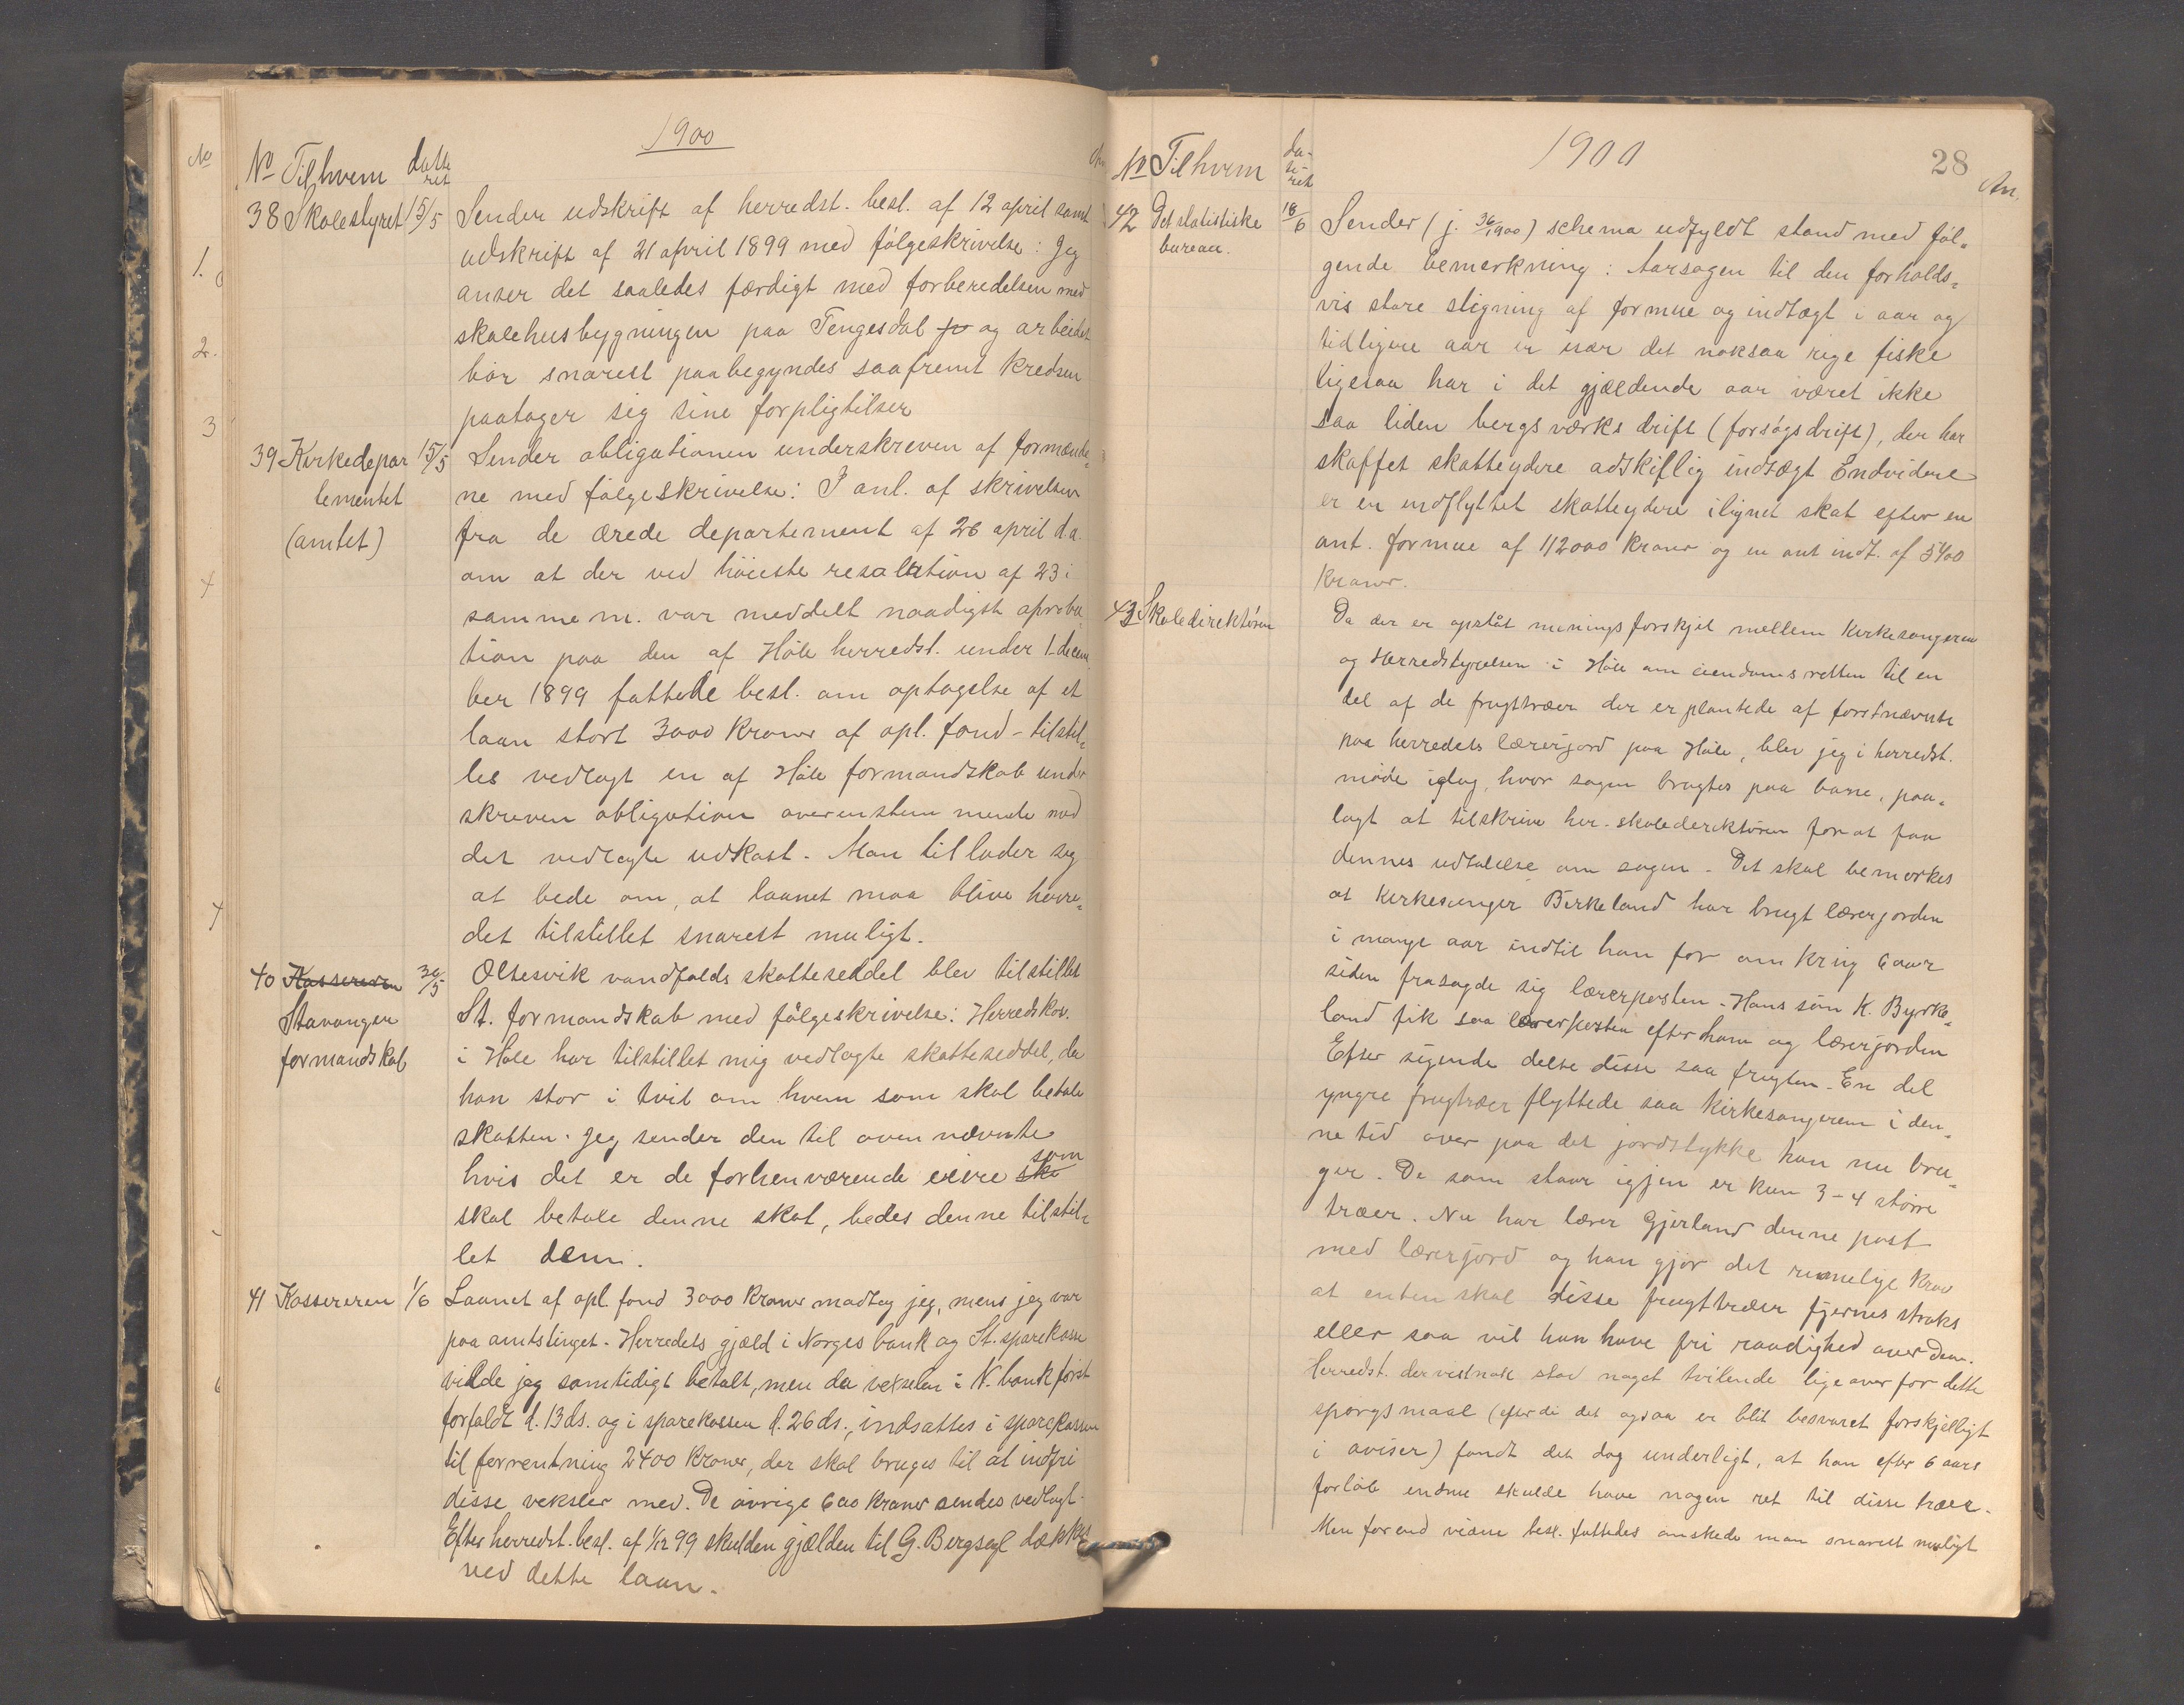 1900
No Tilhvem datte
ret
38 Skolestyret 15/5 Sender udskrift af herredst. besl. af 12 april samt
udskrift af 21 april 1899 med følgeskrivelse: Jeg
anser det saaledes færdigt med forberedelsen med
skolehusbygningen paa Tengesdal og arbeidet
bør snarest paabegyndes saafremt kredsen
paatager sig sine forpligtilser
39 Kirkedepar 15/5 Sender obligationen underskreven af formænde„
tementet ne med følgeskrivelse: I anl. af skrivelsen
(amtet) fra de ærede departement af 26 april d.a.
om at der ved høieste resolution af 23 i
samme m. var meddelt naadigst aproba„
tion paa den af Høle herredst. under 1 decem
ber 1899 fattede besl. om optagelse af et
laan stort 3000 kroner af opl. fond - tilstil„
les vedlagt en af Høle formandskab under
skreven obligation overenstemmende med
det vedlagte udkast. Man tillader sig
at bede om, at laanet maa blive herre„
det tilstillet snarest muligt.
40 Kassereren 30/5 Oltesvik vandfalds skatteseddel blev tilstillet
Stavanger St. formandskab med følgeskrivelse: Herredskas.
formandskab i Høle har tilstillet mig vedlagte skatteseddel, da
han star i tvil om hvem som skal betale
skatten. Jeg sender den til ovennævnte
hvis det er de forhenværende eiere ska som
skal betale denne skat, bedes denne tilstil„
let dem.
41 Kassereren 1/6 Laanet af opl. fond 3000 kroner modtog jeg, mens jeg var
paa amtstinget. Herredets gjæld i Norges bank og St. sparekasse
vilde jeg samtidigt betalt, men da vekselen i N. bank først
forfaldt d. 13 ds. og i sparekassen d. 26 ds., indsattes i sparekassen
til forrentning 2400 kroner, der skal bruges til at indfri
disse veksler med. De øvrige 600 kroner sendes vedlagt.
Efter herredst. besl. af 1/12 99 skulden gjælden til G. Bergsagl dækkes
ved dette laan.
1900
28
No Tilhvem da-
te-
ret
An.
42 Det statistiske 18/6 Sender (j. 36/1900) schema udfyldt stand med føl„
bureau. gende bemerkning: Aarsagen til den forholds„
vis store stigning af formue og indtægt i aar og
tidligere aar er især det noksaa rige fiske
ligesaa har i det gjældende aar været ikke
saa liden bergsværksdrift (forsøgsdrift), der har
skaffet skatteydere adskillig indtægt Endvidere
er en indflyttet skatteydere ilignet skat efter en
ant. formue af 112000 kroner og en ant indt. af 5400
kroner.
43 Skoledirektøren Da der er opståt meningsforskjel mellem kirkesangeren
og Herredstyrelsen i Høle om eiendomsretten til en
del af de frugttræer der er plantede af førstnævnte
paa herredets lærerjord paa Høle, blev jeg i herredst.
møde idag, hvor sagen bragtes paa bane, paa„
lagt at tilskrive her. skoledirektøren for at faa
dennes udtalelse om sagen. Det skal bemerkes
at kirkesanger Birkeland har brugt lærerjorden
i mange aar indtil han for omkring 6 aar
siden frasagde sig lærerposten. Hans søn K. Byrke„
land fik saa lærerposten efter ham og lærerjorden
Efter sigende delte disse saa frugten. En del
yngre frugtræer flyttede saa kirkesangeren i den„
ne tid over paa det jordstykke han nu bru„
ger. De som staar igjen er kun 3-4 større
træer. Nu har lærer Gjerland denne post
med lærerjord og han gjør det rimelige krav
at enten skal disse frugttræer fjernes straks
eller saa vil han have fri raadighed over dem.
Herredst. der vistnok stod noget tvilende ligeoverfor dette
spørgsmaal (efterdi det ogsaa er blit besvaret forskjelligt
i aviser) fandt det dog underligt, at han efter 6 aars
forløb endnu skulde have nogen ret til disse træer.
Men forend videre besl. fattedes ønskede man snarest muligt